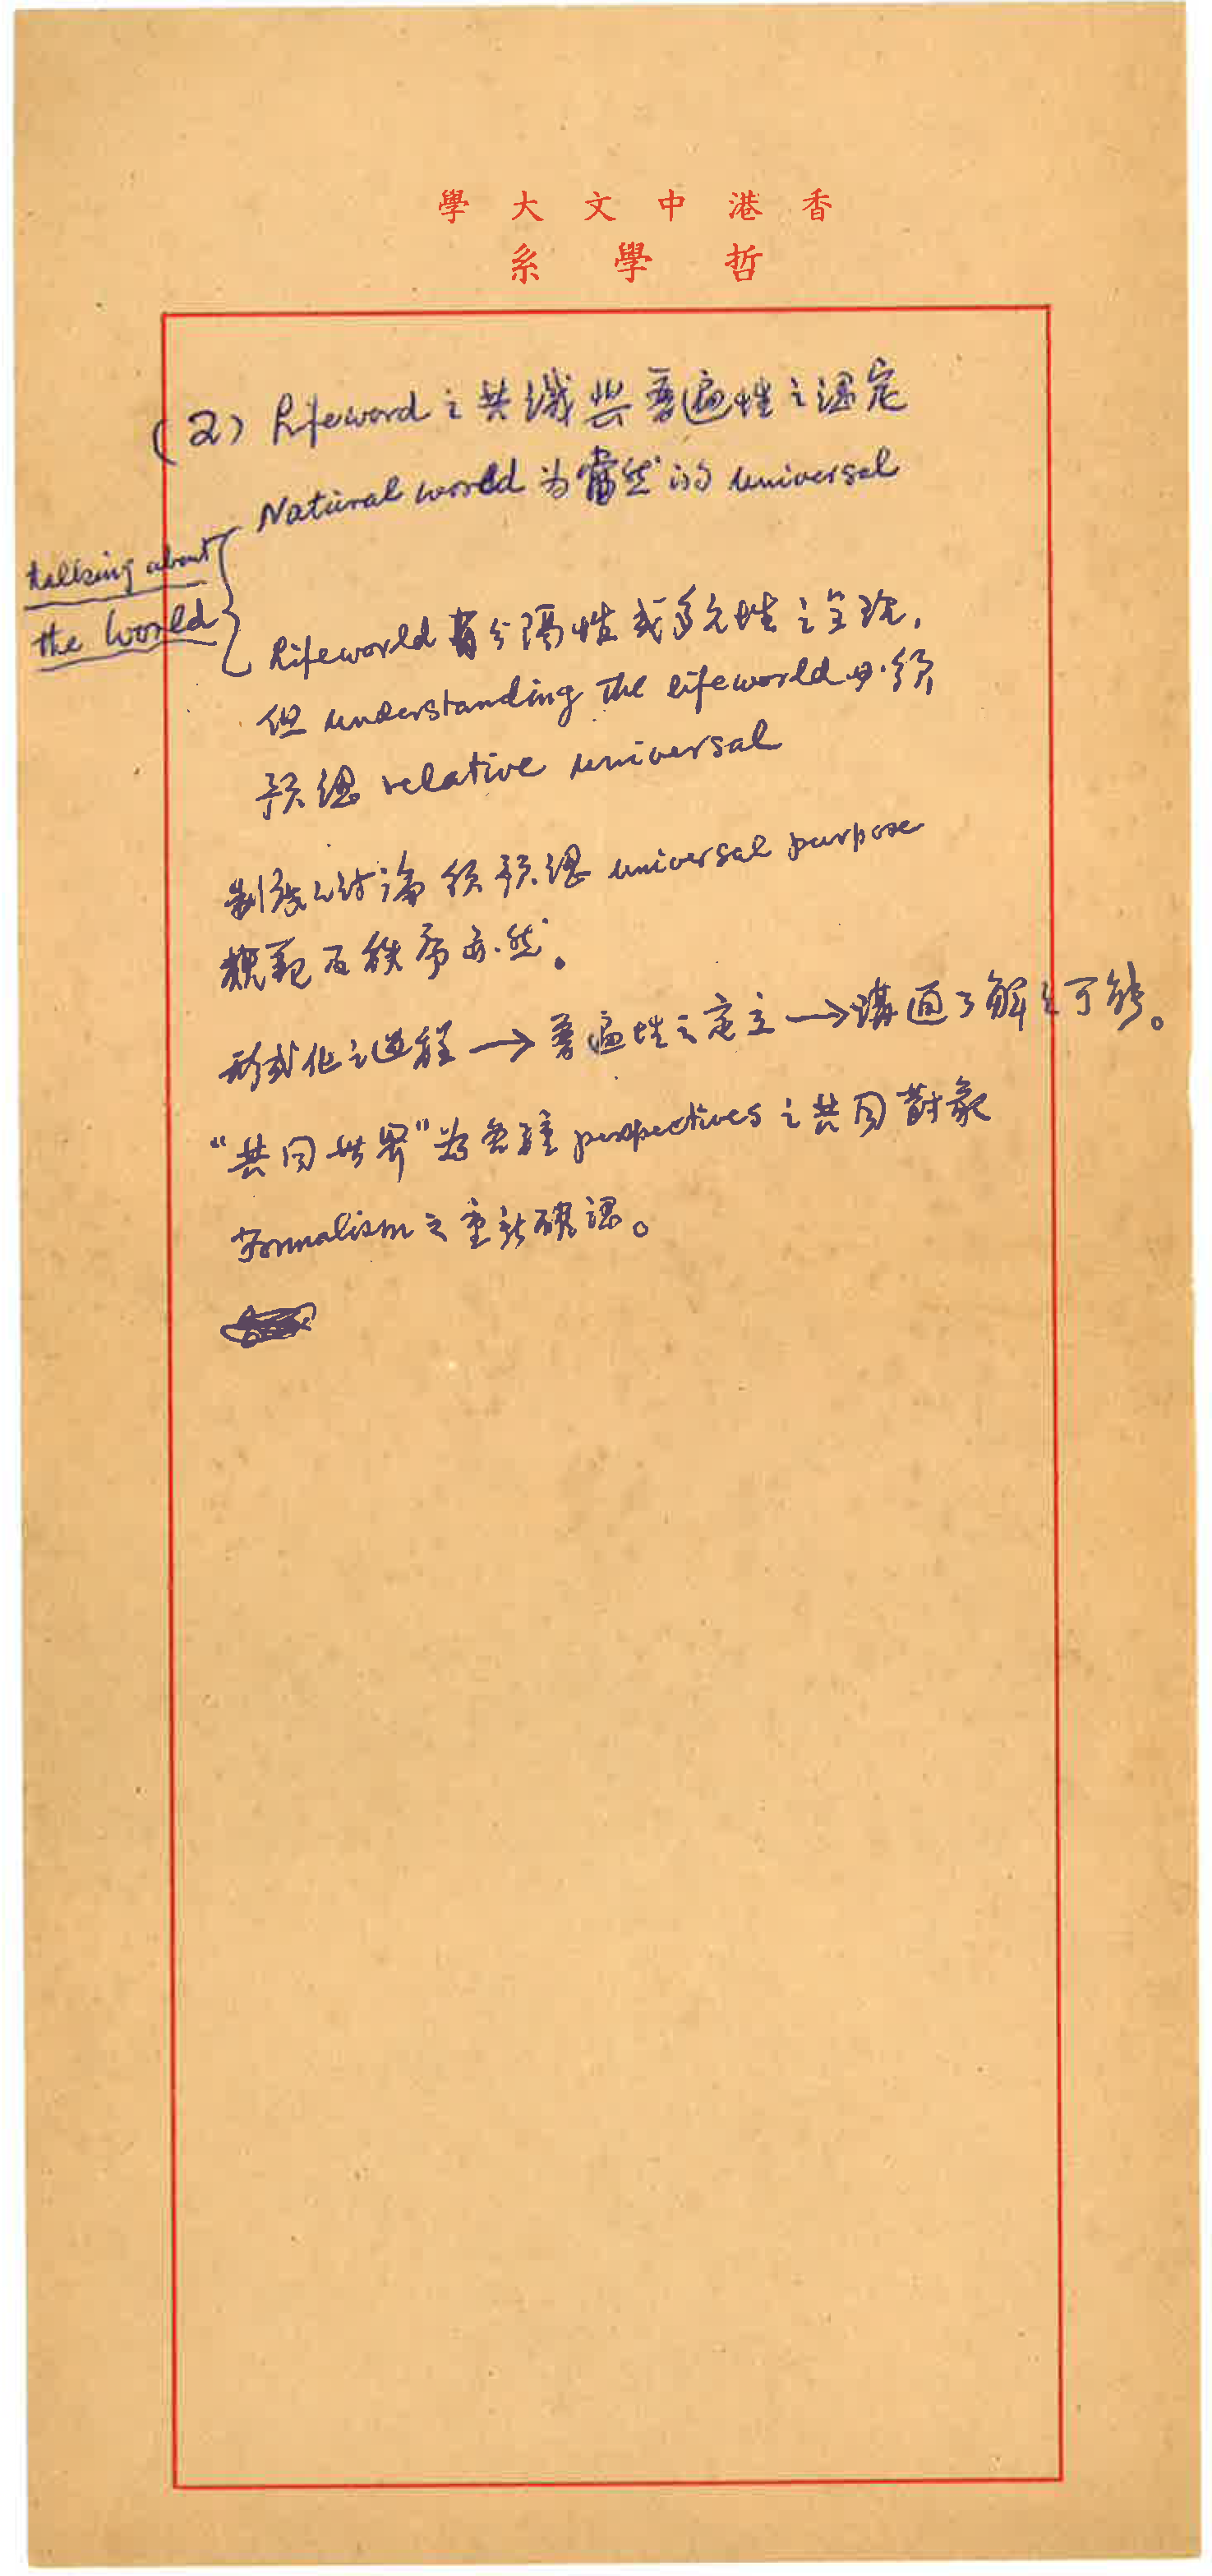 香港中文大學
哲學系
(2) Lifeword之共識與普遍性之認定
Natural world 为當然的 universal
talking about
the World
Lifeworld 有分隔性或多元性之呈現,
但 understanding the lifeworld 必須
預認 relative universal
制度之討論須預認 universal purpose
規範及秩序亦然。
形式化之過程→普遍性之定立→溝通了解之可能。
“共同世界”為各種 perspectives 之共同對象
Formalism 之重新確認。